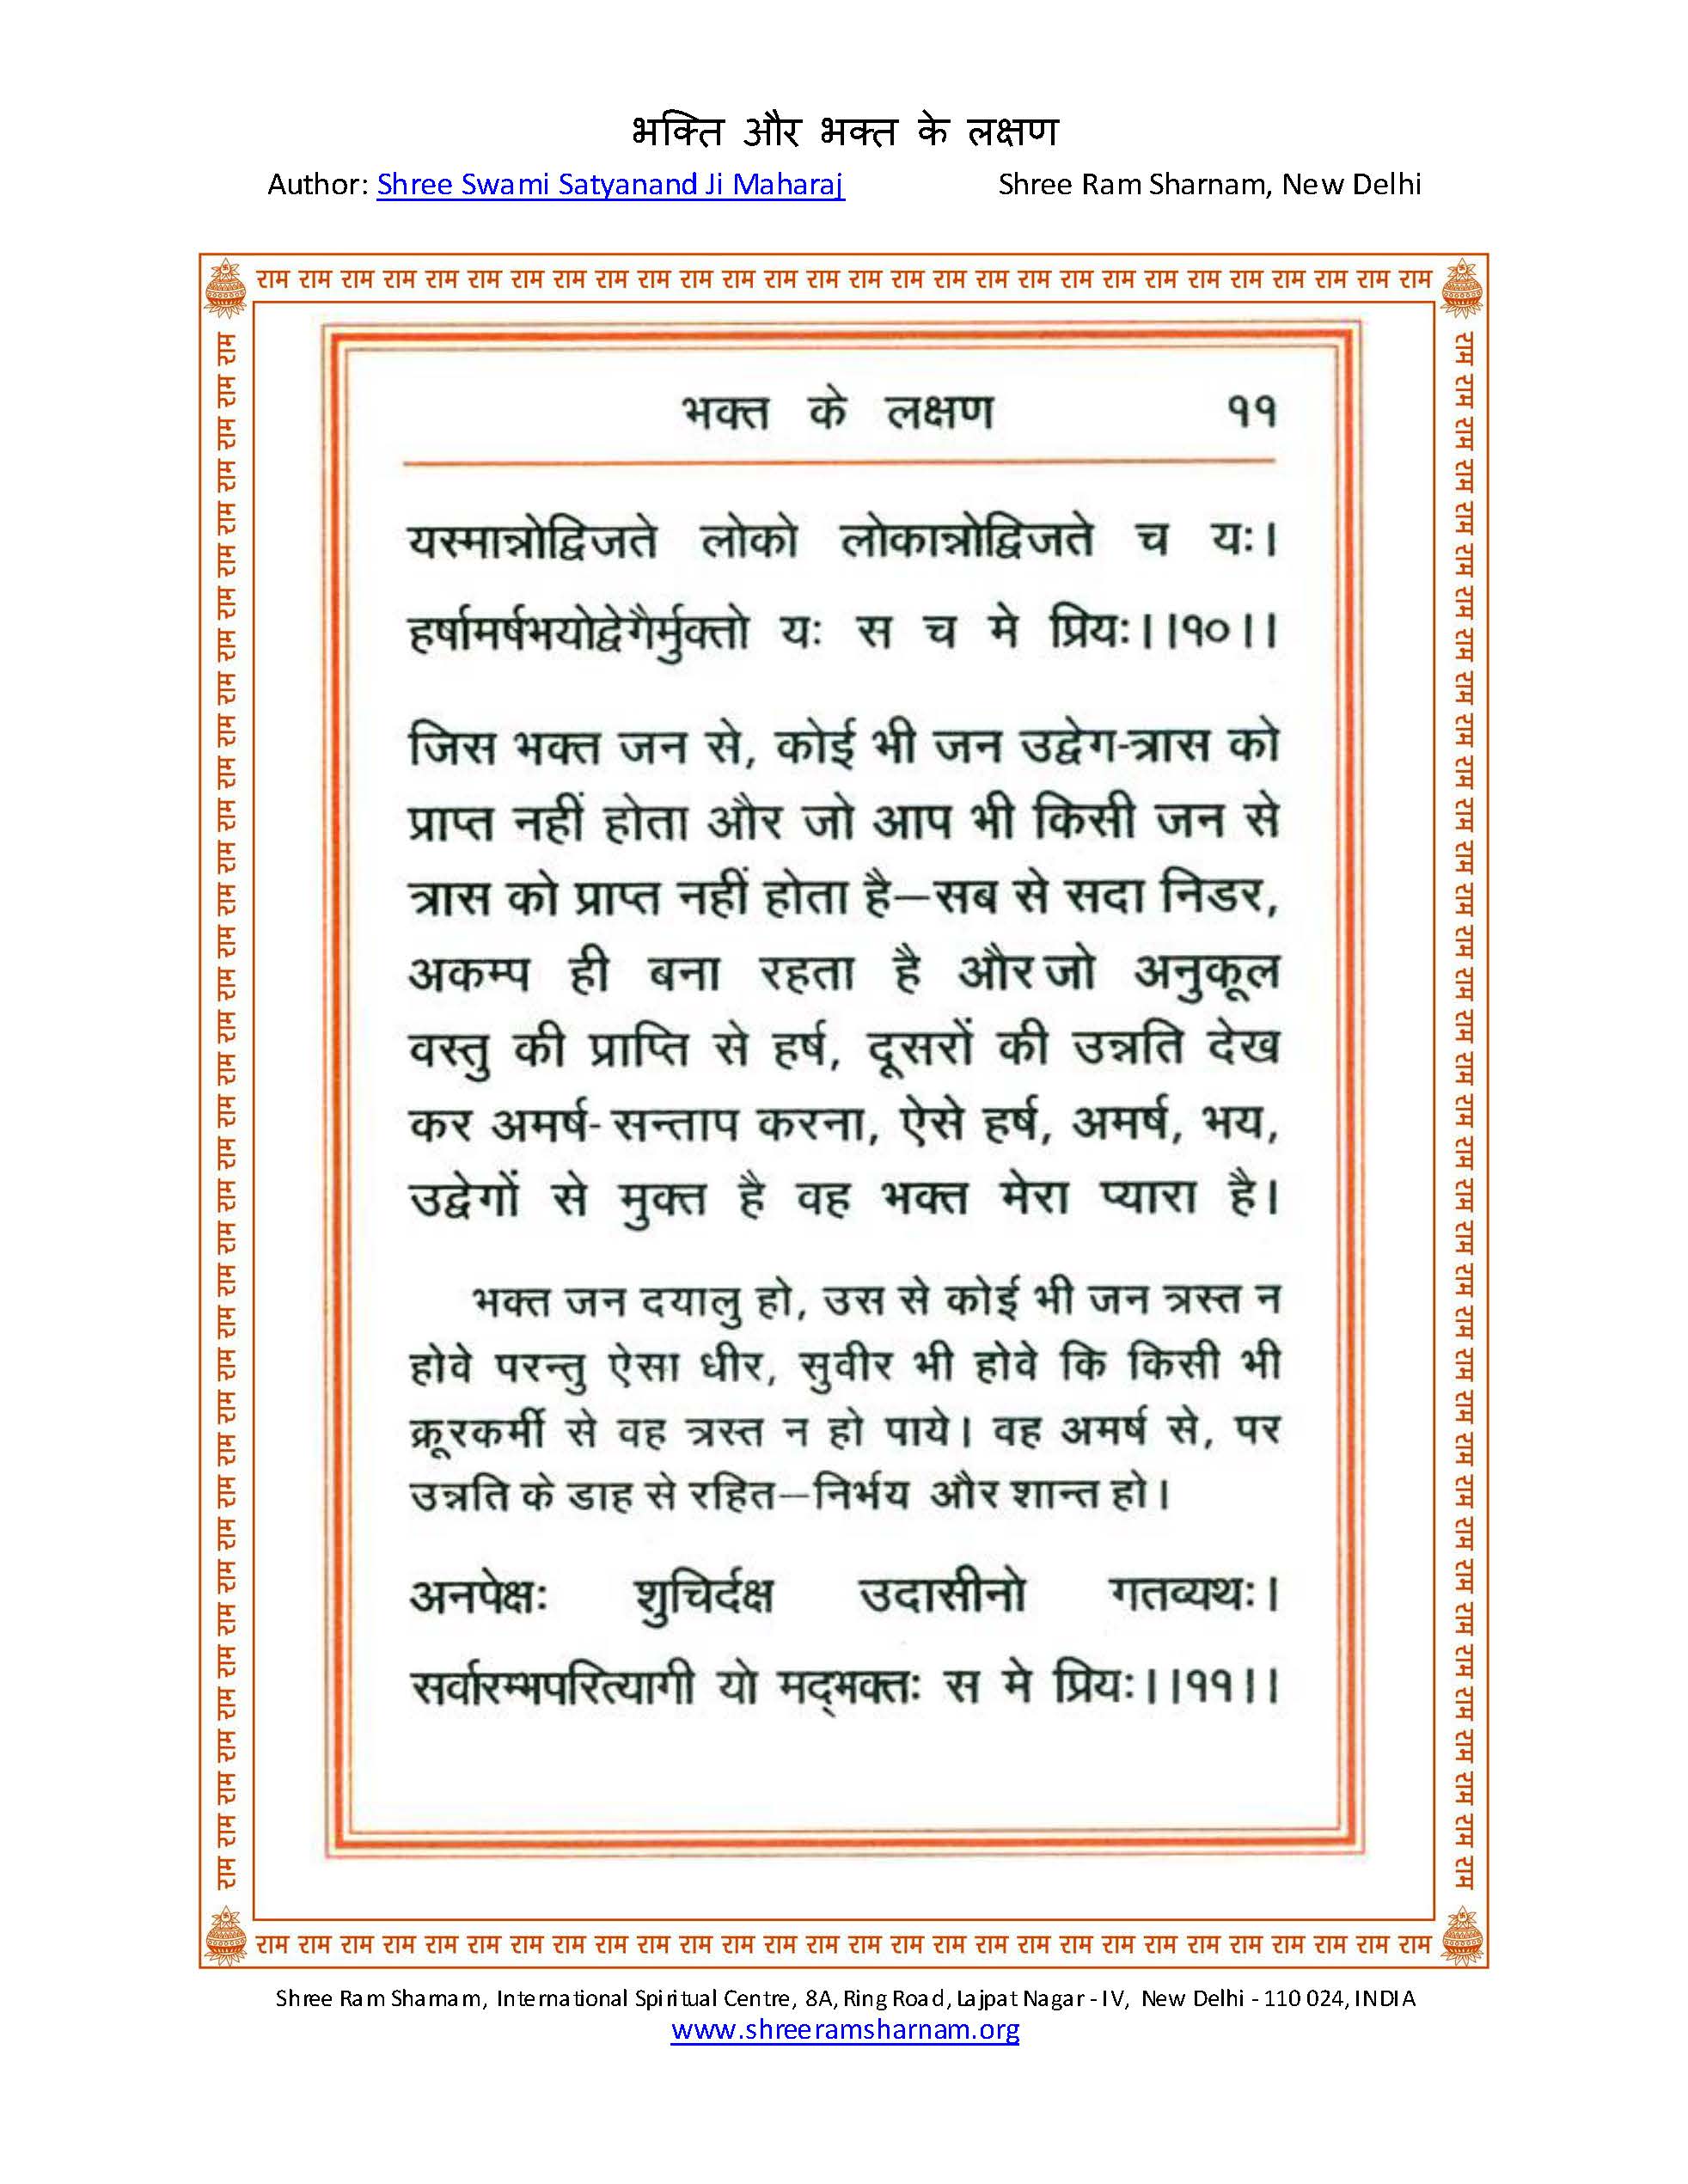 भक्ति और भक्त के लक्षण
Author: Shree Swami Satyanand Ji Maharaj Shree Ram Sharnam, New Delhi
राम राम राम राम राम राम राम राम राम राम राम राम राम राम राम राम राम राम राम राम राम राम राम राम राम राम राम राम
भक्त के लक्षण ११
यस्मान्नोद्विजते लोको लोकान्नोद्विजते च यः।
हर्षामर्षभयोद्वेगैर्मुक्तो यः स च मे प्रियः।।१०।।
जिस भक्त जन से, कोई भी जन उद्वेग-त्रास को
प्राप्त नहीं होता और जो आप भी किसी जन से
त्रास को प्राप्त नहीं होता है—सब से सदा निडर,
अकम्प ही बना रहता है और जो अनुकूल
वस्तु की प्राप्ति से हर्ष, दूसरों की उन्नति देख
कर अमर्ष- सन्ताप करना, ऐसे हर्ष, अमर्ष, भय,
उद्वेगों से मुक्त है वह भक्त मेरा प्यारा है।
भक्त जन दयालु हो, उस से कोई भी जन त्रस्त न
होवे परन्तु ऐसा धीर, सुवीर भी होवे कि किसी भी
क्रूरकर्मी से वह त्रस्त न हो पाये। वह अमर्ष से, पर
उन्नति के डाह से रहित—निर्भय और शान्त हो।
अनपेक्षः शुचिर्दक्ष उदासीनो गतव्यथः।
सर्वारम्भपरित्यागी यो मद्भक्तः स मे प्रियः।।११।।
राम राम राम राम राम राम राम राम राम राम राम राम राम राम राम राम राम राम राम राम राम राम राम राम राम राम राम राम
राम राम राम राम राम राम राम राम राम राम राम राम राम राम राम राम राम राम राम राम राम राम राम राम राम राम राम राम राम राम राम राम राम राम राम राम राम
राम राम राम राम राम राम राम राम राम राम राम राम राम राम राम राम राम राम राम राम राम राम राम राम राम राम राम राम राम राम राम राम राम राम राम राम राम
Shree Ram Sharnam, International Spiritual Centre, 8A, Ring Road, Lajpat Nagar - IV, New Delhi - 110 024, INDIA
www.shreeramsharnam.org